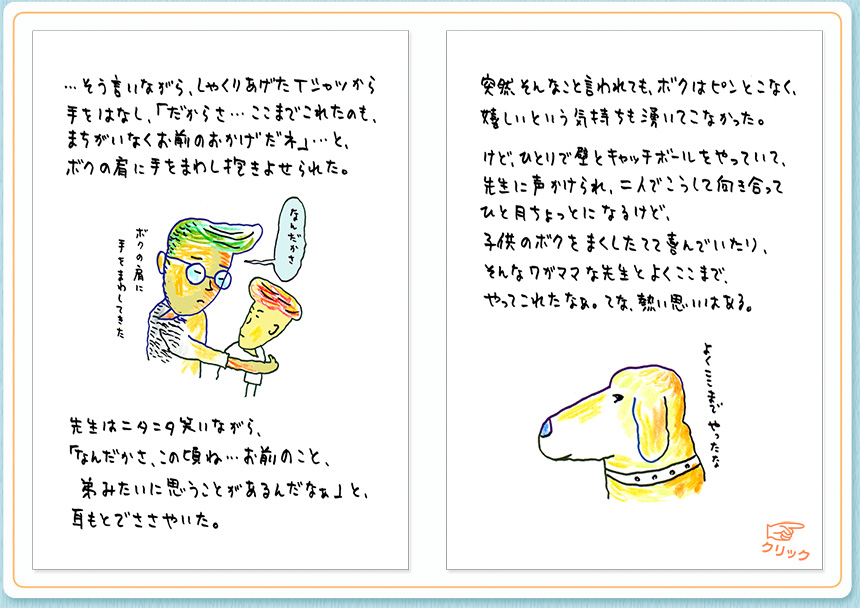 …そう言いながら、しゃくりあげたTシャツから
手をはなし、「だからさ…ここまでこれたのも、
まちがいなくお前のおかげだネ」…と、
ボクの肩に手をまわし抱きよせられた。
なんだかさ
ボクの肩に
手をまわしてきた
先生はニタニタ笑いながら、
「なんだかさ、この頃ね…お前のこと、
弟みたいに思うことがあるんだなぁ」と、
耳もとでささやいた。
突然そんなこと言われても、ボクはピンとこなく、
嬉しいという気持ちも湧いてこなかった。
けど、ひとりで壁とキャッチボールをやっていて、
先生に声かけられ、二人でこうして向き合って
ひと月ちょっとになるけど、
子供のボクをまくしたてて喜んでいたり、
そんなワガママな先生とよくここまで、
やってこれたなぁ。てな、熱い思いはある。
よくここまでやったな
クリック